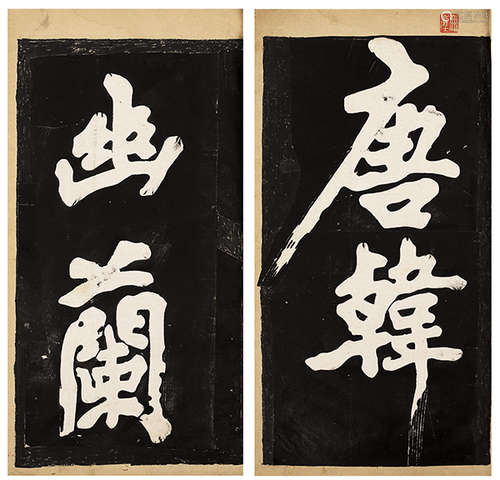 唐韓
幽蘭